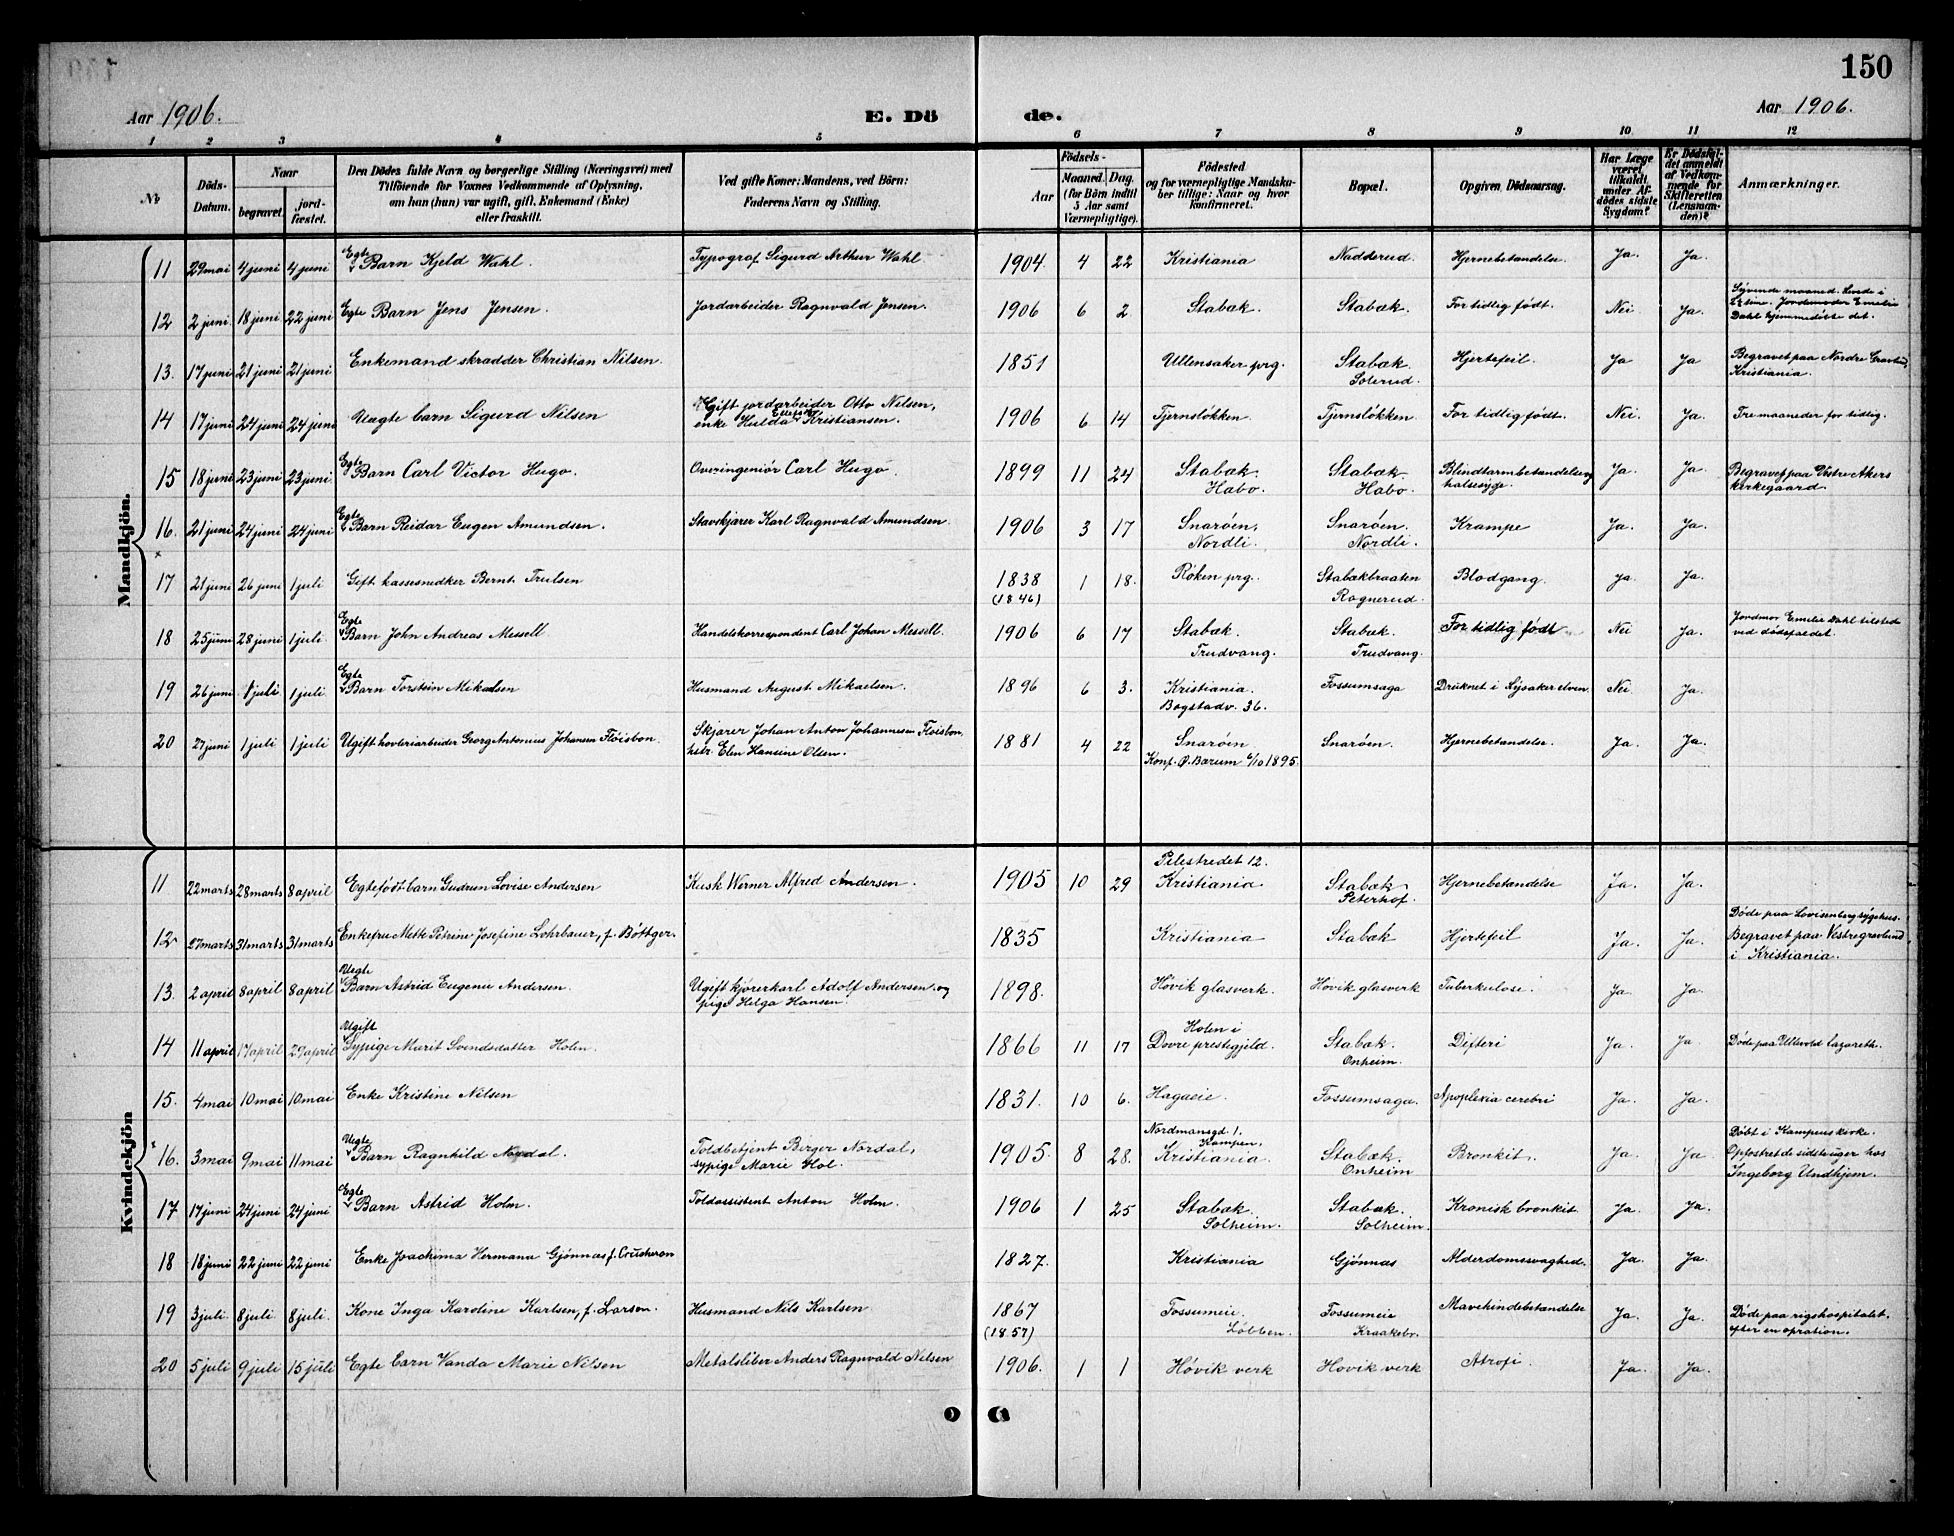 150
Aar 1906. E. Dö de. Aar 1906.
1 2 3 4 5 6 7 8 9 10 11 12
No
Döds-Datum.
Naar
begravet. jord-fæstet.
Den Dödes fulde Navn og borgerlige Stilling (Næringsvei) med
Tilföiende for Voxnes Vedkommende af Oplysning,
om han (hun) var ugift, gift, Enkemand (Enke)
eller fraskilt.
Ved gifte Koner: Mandens, ved Börn:
Faderens Navn og Stilling.
Födsels-
Aar Maaned. Dag.
(for Börn indtil
5 Aar samt
Værnepligtige).
Födested
og for værnepligtige Mandska-
ber tillige: Naar og hvor
konfirmeret.
Bopæl.
Opgiven Dödsaarsag.
Har Læge
været
tilkaldt
under Af-
dödes sidste
Sygdom?
Er Dödsfal-
det anmeldt
af Vedkom-
mende for
Skifteretten
(Lensman-
den)?
Anmærkninger.
Mandkjön.
11 29 mai 4 juni 4 juni Egte Barn Kjeld Wahl. Typograf Sigurd Arthur Wahl 1904 4 22 Kristiania Nadderud. Hjernebetændelse. Ja. Ja.
12 2 juni 18 juni 22 juni Egte Barn Jens Jensen. Jordarbeider Ragnvald Jensen. 1906 6 2 Stabæk. Stabæk. For tidlig født. Nei. Ja. Syvende maaned. Levede i
time. Jordemoder Emilie
Dahl hjemmedøbte det.
13. 17 juni 21 juni 21 juni Enkemand skrædder Christian Nilsen. 1851 Ullensaker prg. Stabæk. Solerud. Hjertefeil Ja Ja Begravet paa Nordre Gravlund,
Kristiania.
14 17 juni 24 juni 24 juni Uægte barn Sigurd Nilsen Gift jordarbeider Otto Nilsen,
enke Hulda Kristiansen. 1906 6 14 Tjernsløkken Tjernsløkken For tidlig født. Nei. Ja. Tre maaneder for tidlig.
15 18 juni 23 juni 23 juni. Egte Barn Carl Victor Hugo. Overingeniør Carl Hugo 1899 11 24 Stabæk. Habo. Stabæk. Habo. Blindtarmbetændelse og
halssyge. Ja. Ja. Begravet paa Vestre Akers
kirkegaard.
16. 21 juni 24 juni 24 juni Egte Barn Reidar Eugen Amundsen. Stavskjærer Karl Ragnvald Amundsen. 1906 3 17 Snarøen, Nordli. Snarøen. Nordli. Krampe Ja. Ja.
17 21 juni 26 juni 1 juli Gift kassesnedker Bernt Trulsen 1838 (1846) 1 18. Røken prg. Stabækbraaten Ragnerud. Blodgang. Ja. Ja.
18 25 juni 28 juni 1 juli. Egte Barn John Andreas Messell. Handelskorrespondent Carl Johan Messell. 1906 6 17 Stabæk. Trudvang. Stabæk. Trudvang. For tidlig født Nei Ja. Jordmor Emilie Dahl tilstede
ved dødsfaldet.
19 26 juni 1 juli 1 juli Egte Barn Torstein Mikaelsen Husmand August Mikaelsen. 1896 6 3. Kristiania. Bogstadv. 36. Fossumsaga Druknet i Lysaker elven. Nei Ja.
20 27 juni 1 juli 1 juli Ugift høveriarbeider Georg Antonius Johansen Fløisbon. Skjærer Johan Anton Johannesen Fløisbon,
hstr. Elen Hansine Olsen. 1881 4 22 Snarøen Konf. Ø. Bærum 6/10 1895. Snarøen. Hjernebetændelse. Ja. Ja.
Kvindekjön
11 22 marts 28 marts 8 april Egtefødt barn Gudrun Lovise Andersen Kusk Werner Alfred Andersen. 1905 10 29 Pilestredet 12. Kristiania Stabæk. Peterhof. Hjernebetændelse Ja. Ja.
12 27 marts 31 marts 31 marts Enkefru Mette Petrine Josefine Lohrbauer, f. Bøttger. 1835 Kristiania Stabæk Hjertefeil Ja. Ja. Døde paa Lovisenberg sygehus.
Begravet paa Vestre gravlund
i Kristiania.
13. 2 april 8 april 8 april Uegte Barn Astrid Eugenie Andersen. Ugift kjørerkarl Adolf Andersen og
pige Helga Hansen. 1898. Høvik glasverk. Høvik glasverk Tuberkulose. Ja. Ja.
14 11 april 17 april 29 april Ugift Sypige Marit Svendsdatter Holen. 1866 11 17 Holen i Dovre prestegjeld. Stabæk. Onheim. Difteri Ja. Ja. Døde paa Ullevold Lazareth.
15. 4 mai 10 mai 10 mai Enke Kristine Nilsen 1831. 10 6. Hagaeie. Fossumsaga. Apoplexia cerebri Ja. Ja.
16. 3 mai 9 mai 11 mai Uegte Barn Ragnhild Nordal. Toldbetjent Berger Nordal,
sypige Marie Hol. 1905. 8 28. Nordmansgd. 1. Kampen, Kristiania. Stabæk. Onheim Bronkit. Ja. Ja Døbt i Kampens kirke.
Opfostret de sidste uger hos
Ingeborg Undhjem.
17 17 juni 24 juni 24 juni Egte Barn Astrid Holm. Toldassistent Anton Holm. 1906 1 25 Stabæk Solheim. Stabæk. Solheim. Kronisk bronkit. Ja. Ja.
18 18 juni 22 juni 22 juni Enke Joachima Hermana Gjønnæs f. 1827. Kristiania Gjønnæs Alderdomssvaghed. Ja. Ja.
19 3 juli 8 juli 8 juli. Kone Inga Karoline Karlsen, f. Larsen. Husmand Nils Karlsen 1867 (1857) Fossumeie. Løbben. Fossumeie Kraakebr. Mavehindebetændelse Ja. Ja. Døde paa rigshospitalet.
efter en opration.
20 5 juli 9 juli 15 juli Egte barn Vanda Marie Nilsen Metalsliber Anders Ragnvald Nilsen 1906. 1 1 Høvik verk Høvik verk Atrofi Ja. Ja.